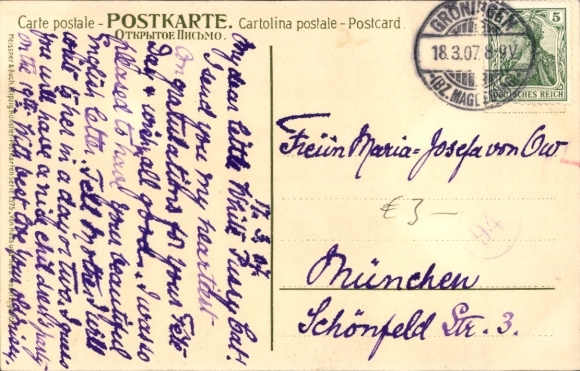 Carte postale - POSTKARTE. Cartolina postale - Postcard.
ОТКРЫТОЕ ПИСЬМО.
GRÖNINGEN
18.3.07. 8-9V.
(BZ. MAGDEB.)
5
DEUTSCHES REICH
17. 3. 07
My dear little White Pussy Cat!
I send you my heartiest
Congratulations for your Fête
Day & wish all good. I was so
pleased to have your beautiful
English letter. Tell Mother I will
write to her in a day or two. I guess
you will have a nice children's party
on the 19th. With best love your old Missy.
Freiin Maria-Josefa von Ow
€ 3 —
94
München
Schönfeld Str. 3.
Meissner & Buch, Leipzig